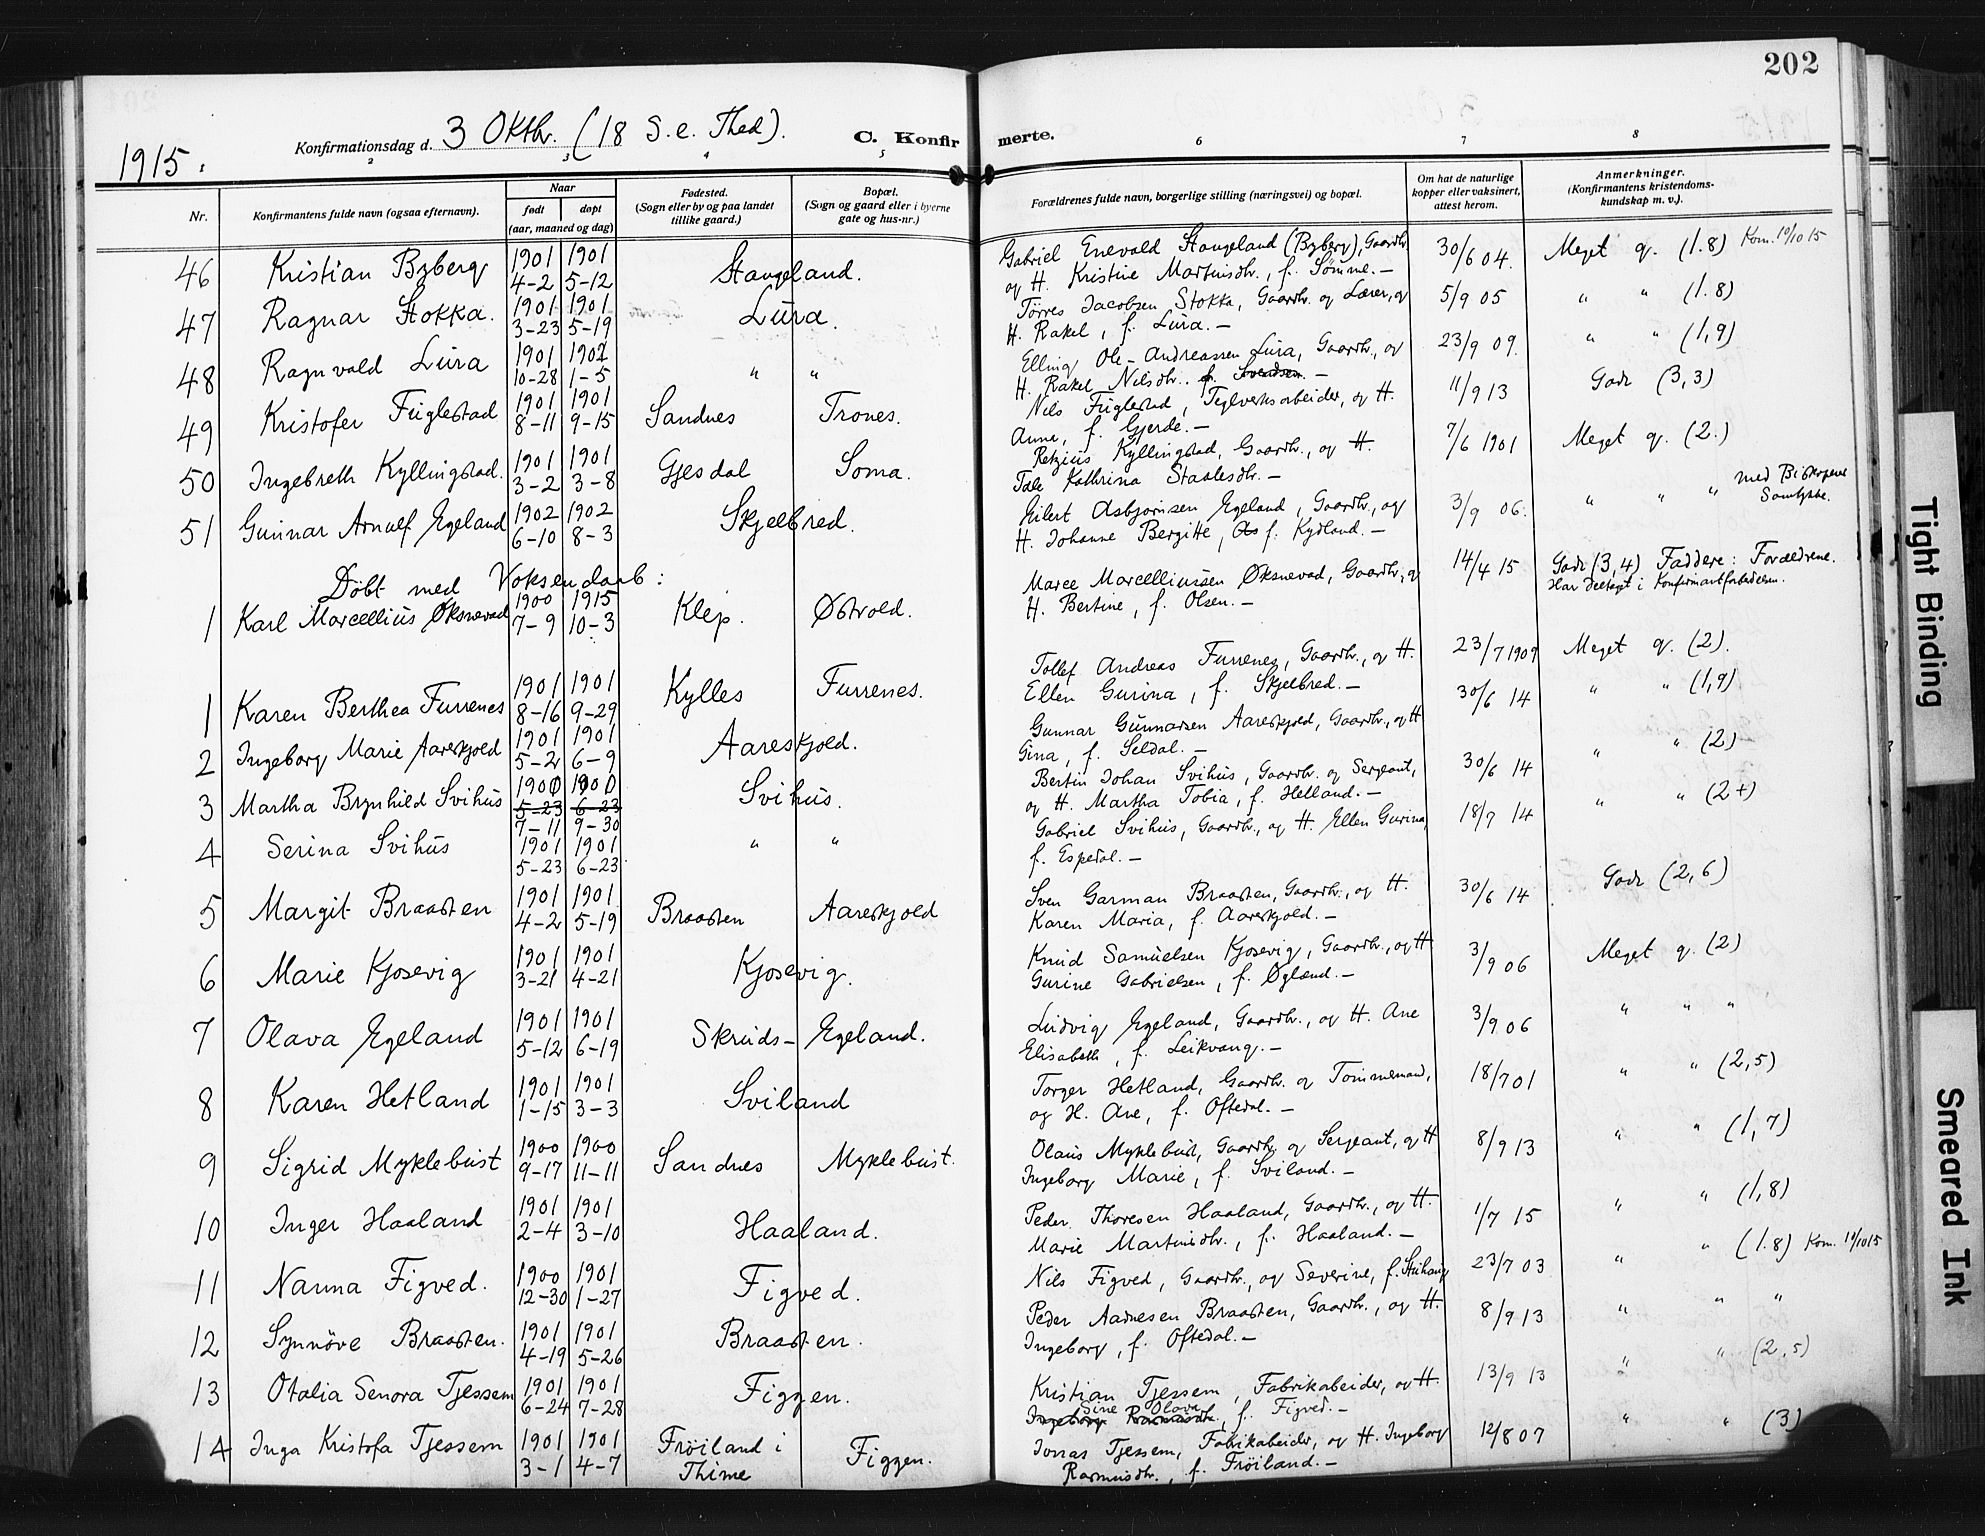 202
1915.
Konfirmationsdag d. 3 Oktbr. (18 S. e. Thed).
C. Konfirmerte.
2 3 4 5 6 7 8
Nr.
Konfirmantens fulde navn (ogsaa efternavn).
Naar
født døpt
(aar, maaned og dag)
Fødested.
(Sogn eller by og paa landet
tillike gaard.)
Bopæl.
(Sogn og gaard eller i byerne
gate og hus-nr.)
Forældrenes fulde navn, borgerlige stilling (næringsvei) og bopæl.
Om hat de naturlige
kopper eller vaksinert,
attest herom.
Anmerkninger.
(Konfirmantens kristendoms-
kundskap m. v.).
46 Kristian Byberg 1901 4-2 1901 5-12 Stangeland.
Gabriel Enevald Stangeland (Byberg), Gaardbr.
og H. Kristine Martinsdtr., f. Sømme. —
30/6 04. Meget g. (1.8) Kom. 10/10 15
47 Ragnar Stokka. 1901 3-23 1901 5-19 Lura.
Tørres Jacobsen Stokka, Gaardbr. og Lærer, og
H. Rakel, f. Lura. —
5/9 05 " " (1.8)
48 Ragnvald Lura 1901 10-28 1902 1-5 " "
Elling Ole-Andreassen Lura, Gaardbr., og
H. Rakel Nilsdtr. f. Svendsen. —
23/9 09. " " (1,9)
49 Kristofer Fuglestad 1901 8-11 1901 9-15 Sandnes Trones.
Nils Fuglestad, Teglverksarbeider, og H.
Anna, f. Gjerde. —
11/9 13 Godt (3,3)
50 Ingebreth Kyllingstad. 1901 3-2 1901 3-8 Gjesdal Soma.
Retzius Kyllingstad, Gaardbr., og H.
Tale Kathrina Staalesdtr. —
7/6 1901 Meget g. (2.)
51 Gunnar Arnulf Egeland 1902 6-10 1902 8-3 Skjelbred.
Eilert Asbjørnsen Egeland, Gaardbr., og
H. Johanne Bergitte, As f. Kydland. —
3/9 06. " " " med Biskopens
Samtykke.
Döbt med Voksendaab:
1 Karl Marcellius Øksnevad 1900 7-9 1915 10-3 Klep. Østvold.
Marce Marcelliussen Øksnevad, Gaardbr., og
H. Bertine, f. Olsen. —
14/4 15 Godt (3,4) Faddere: Forældrene.
Har deltaget i Konfirmantforbedelsen.
1 Karen Berthea Furrenes 1901 8-16 1901 9-29 Kylles Furrenes.
Tollef Andreas Furrenes, Gaardbr., og H.
Ellen Gurina, f. Skjelbred. —
23/7 1909 Meget g. (2).
2 Ingeborg Marie Aareskjold 1901 5-2 1901 6-9 Aareskjold.
Gunnar Gunnarsen Aareskjold, Gaardbr., og H
Gina, f. Seldal. —
30/6 14 " " (1,9)
3 Martha Brynhild Svihus 1900 5-23 7-11 1900 6-23 9-30 Svihus.
Bertin Johan Svihus, Gaardbr. og Sergeant,
og H. Martha Tobia, f. Helland. —
30/6 14 " " (2)
4 Serina Svihus 1901 5-23 1901 6-23 " "
Gabriel Svihus, Gaardbr., og H. Ellen Gurina,
f. Espedal. —
18/7 14 " " (2+)
5 Margit Braasten 1901 4-2 1901 5-19 Braasten Aareskjold
Sven Garman Braasten, Gaardbr., og H.
Karen Maria, f. Aareskjold. —
30/6 14 Godt (2,6)
6 Marie Kjosevig 1901 3-21 1901 4-21 Kjosevig.
Knud Samuelsen Kjosevig, Gaardbr., og H
Gurine Gabrielsen, f. Øglænd. —
3/9 06 Meget g. (2)
7 Olava Egeland 1901 5-12 1901 6-19 Skruds-Egeland.
Ludvig Egeland, Gaardbr., og H. Ane
Elisabeth, f. Leikvang. —
3/9 06 " " "
8 Karen Hetland 1901 1-15 1901 3-3 Sviland
Torger Hetland, Gaardbr. og Tømmermand,
og H. Ane, f. Oftedal. —
18/7 01 " " (2,5)
9 Sigrid Myklebust 1900 9-17 1900 11-11 Sandnes Myklebust.
Olaus Myklebust, Gaardbr. og Sergeant, og H
Ingeborg Marie, f. Sviland. —
8/9 13 " " (1,7)
10 Inger Haaland 1901 2-4 1901 3-10 Haaland.
Peder Thoresen Haaland, Gaardbr., og H.
Marie Martinsdtr., f. Haaland. —
1/7 15 " " (1,8)
11 Nanna Figved. 1900 12-30 1901 1-27 Figved.
Nils Figved, Gaardbr., og Severine, f.
23/7 03 " " (1.8) Kom. 10/10 15
12 Synnöve Braasten. 1901 4-19 1901 5-26 Braasten.
Peder Aadnesen Braasten, Gaardbr., og H.
Ingeborg, f. Oftedal. —
8/9 13 " " "
13 Otalia Senora Tjessem 1901 6-24 1901 7-28 Figgen.
Kristian Tjessem, Fabrikabeider, og H.
Sine Olava
Ingeborg Rasmusdtr., f. Figved. —
13/9 13 " " (2,5)
14 Inga Kristofa Tjessem 1901 3-1 1901 4-7 Fröiland i
Thime Figgen.
Jonas Tjessem, Fabrikabeider, og H. Ingeborg
Rasmusdtr., f. Fröiland. —
12/8 07 " " (3)
Tight Binding
Smeared Ink